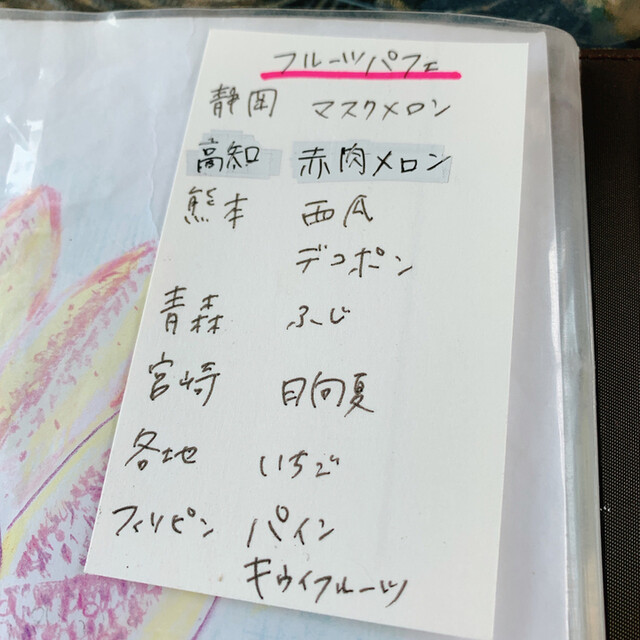 フルーツパフェ
静岡 マスクメロン
高知 赤肉メロン
熊本 西瓜
デコポン
青森 ふじ
宮崎 日向夏
各地 いちご
フィリピン パイン
キウイフルーツ